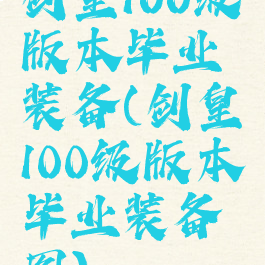 剑皇100级
版本毕业
装备(剑皇
100级版本
毕业装备
图)